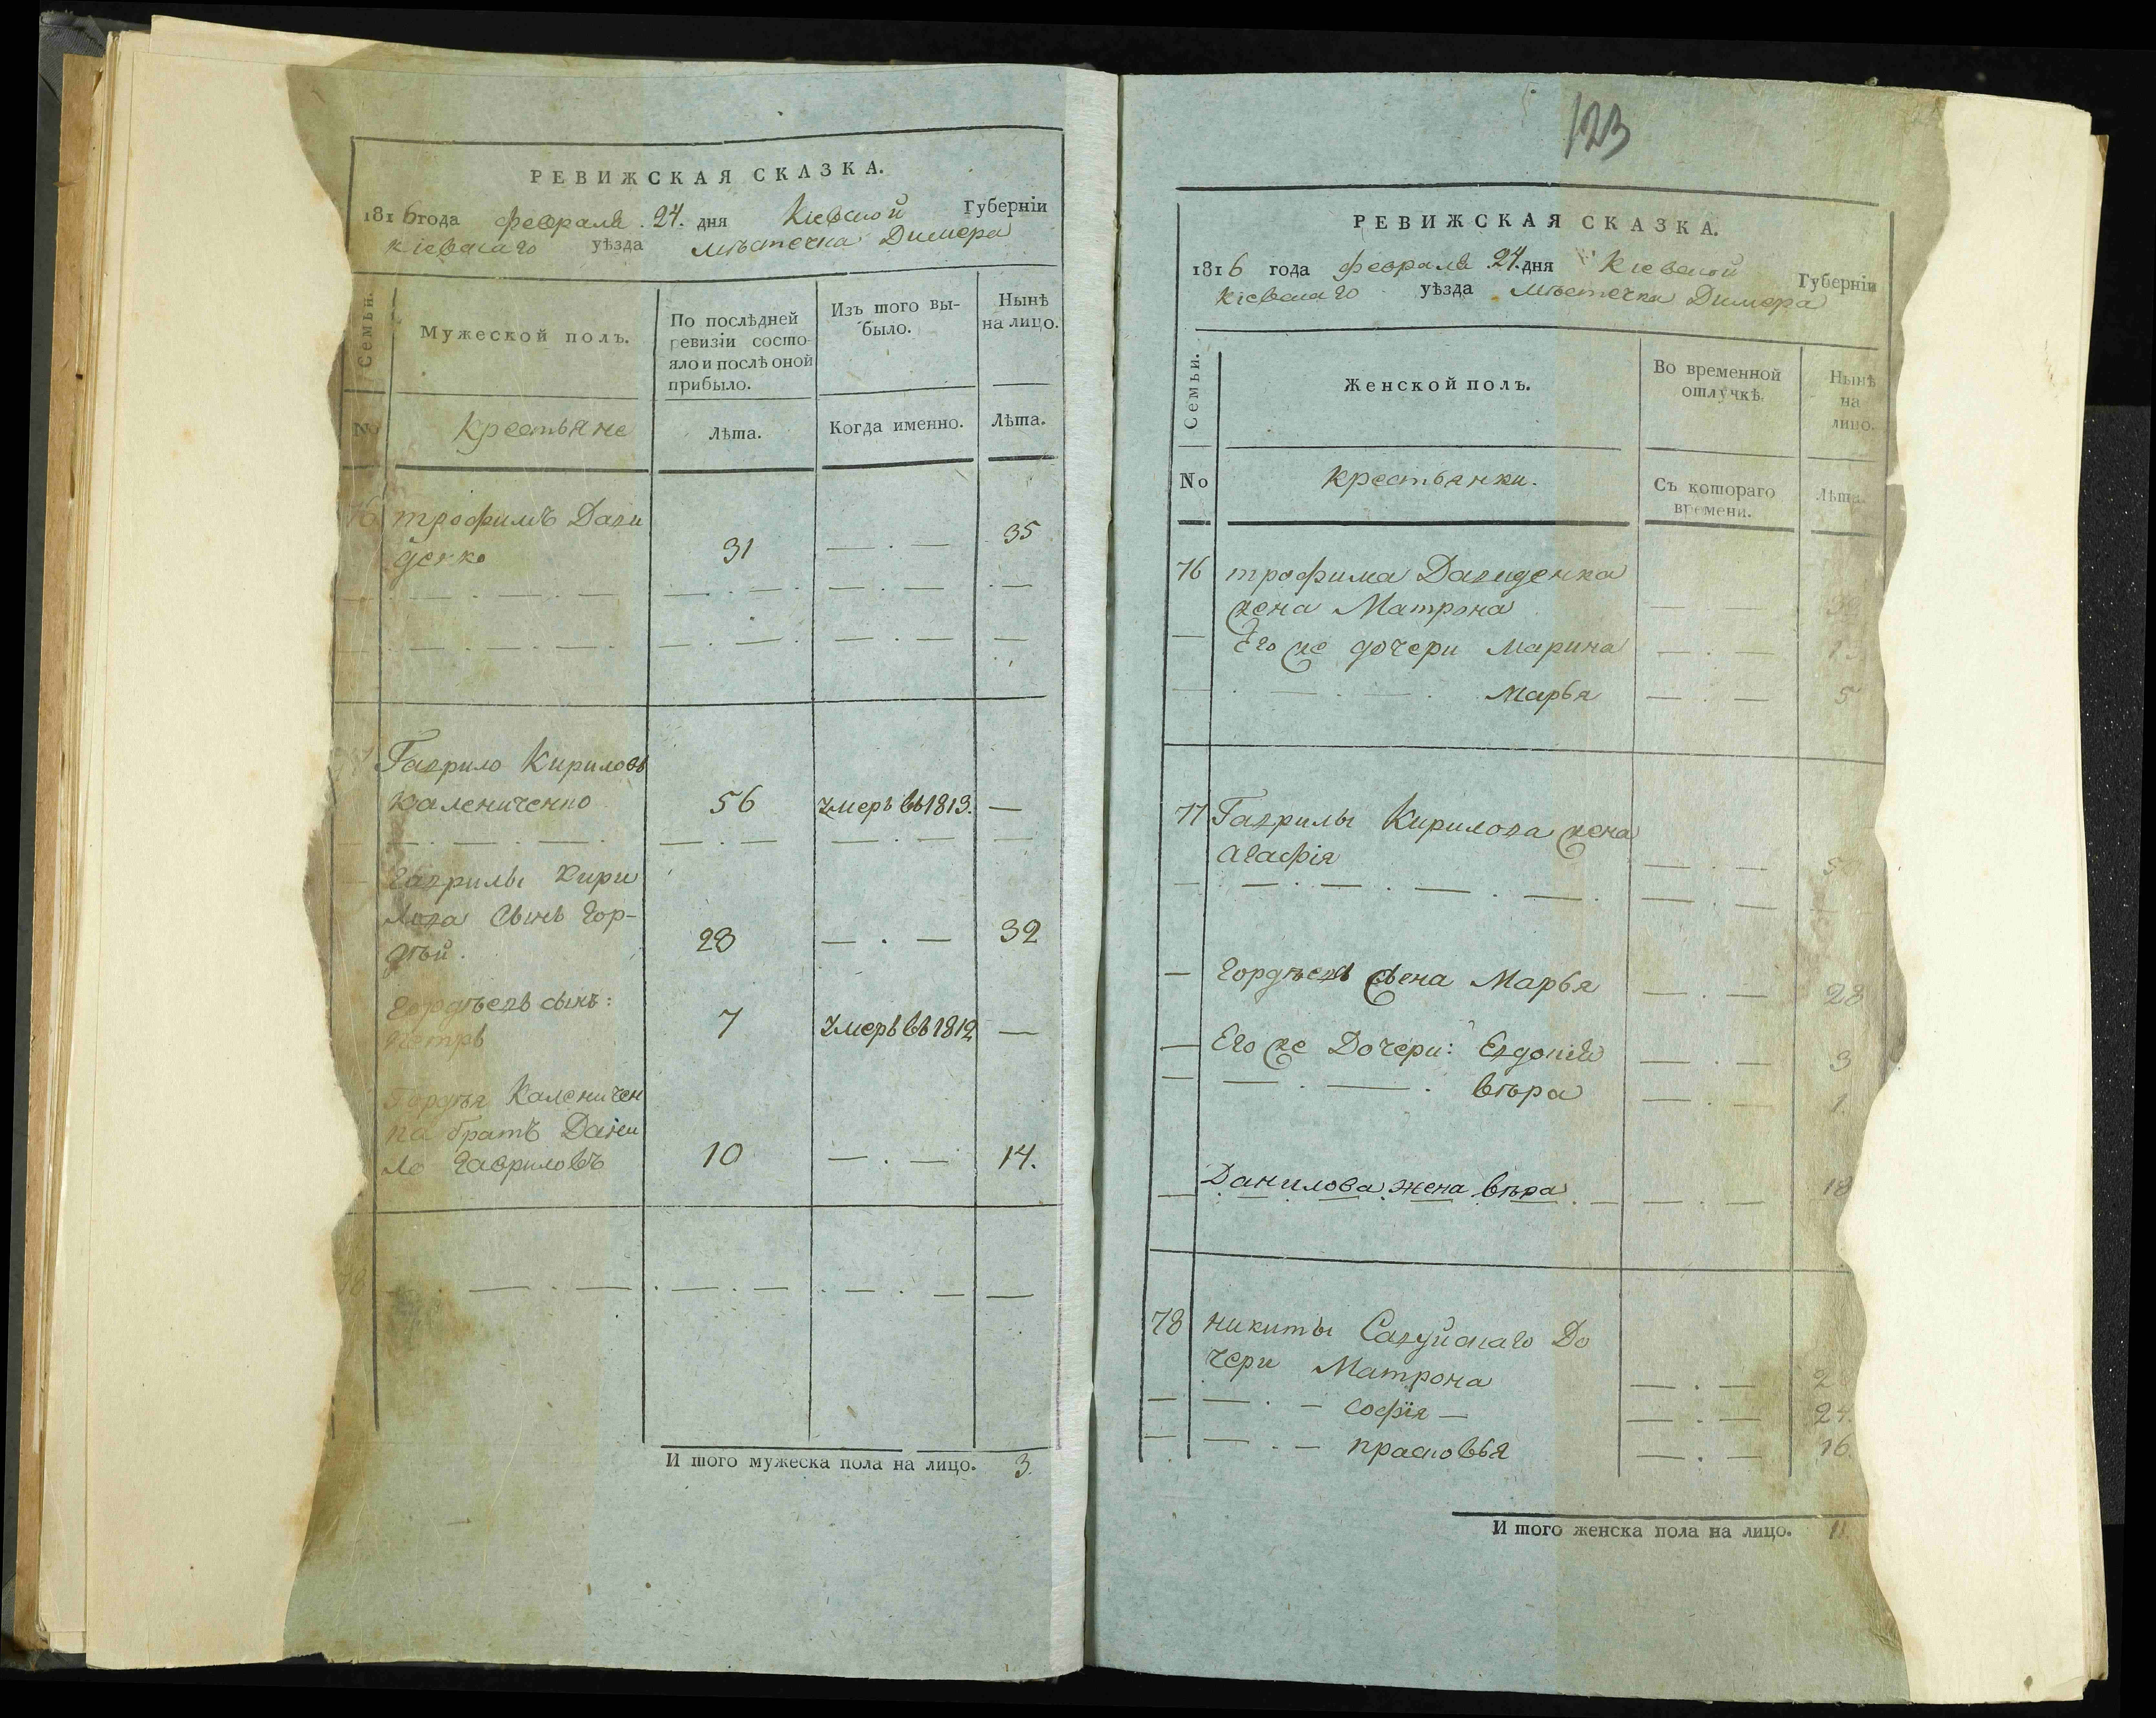 РЕВИЖСКАЯ СКАЗКА.
1816 года февраля 24. дня Кіевской Губерніи
кіевскаго уѣзда мѣстечка Димера
Семьи.
Мужеской полъ.
По послѣдней
ревизіи состо-
яло и послѣ оной
прибыло.
Изъ того вы-
было.
Нынѣ
на лицо.
№
Крестьяне
Лѣта.
Когда именно.
Лѣта.
76 трофимъ Дави
денко 31 — . — 35
Гаврило Кириловъ
Калениченко 56 умеръ въ 1813. —
Гаврилы Кири
лова сынъ Гор-
дѣй. 28 — . — 32
Гордѣевъ сынъ:
Петръ 7 умеръ въ 1812 —
Гордѣя Каленичен
ка братъ Дани
ло Гавриловъ 10 — . — 14.
78
И того мужеска пола на лицо. 3.
123
РЕВИЖСКАЯ СКАЗКА.
1816 года февраля 24. дня Кіевской Губерніи
Кіевскаго уѣзда мѣстечка Димера
Семьи.
Женской полъ.
Во временной
отлучкѣ.
Нынѣ
на
лицо.
No
крестьянки.
Съ котораго
времени.
Лѣта.
76 трофима Давиденка
жена Матрона — —
Его же дочери Марина — . —
Марья — . — 5
77 Гаврилы Кирилова жена
Агафія — . —
— Гордѣева жена Марья — . — 28
— Его же Дочери: Евдокія — . — 3
Вѣра — . — 1.
Данилова жена вѣра — . — 18
78 никиты Савуйскаго До
чери Матрона — . —
софія — — . — 24.
прасковья — . — 16.
И того женска пола на лицо. 11.